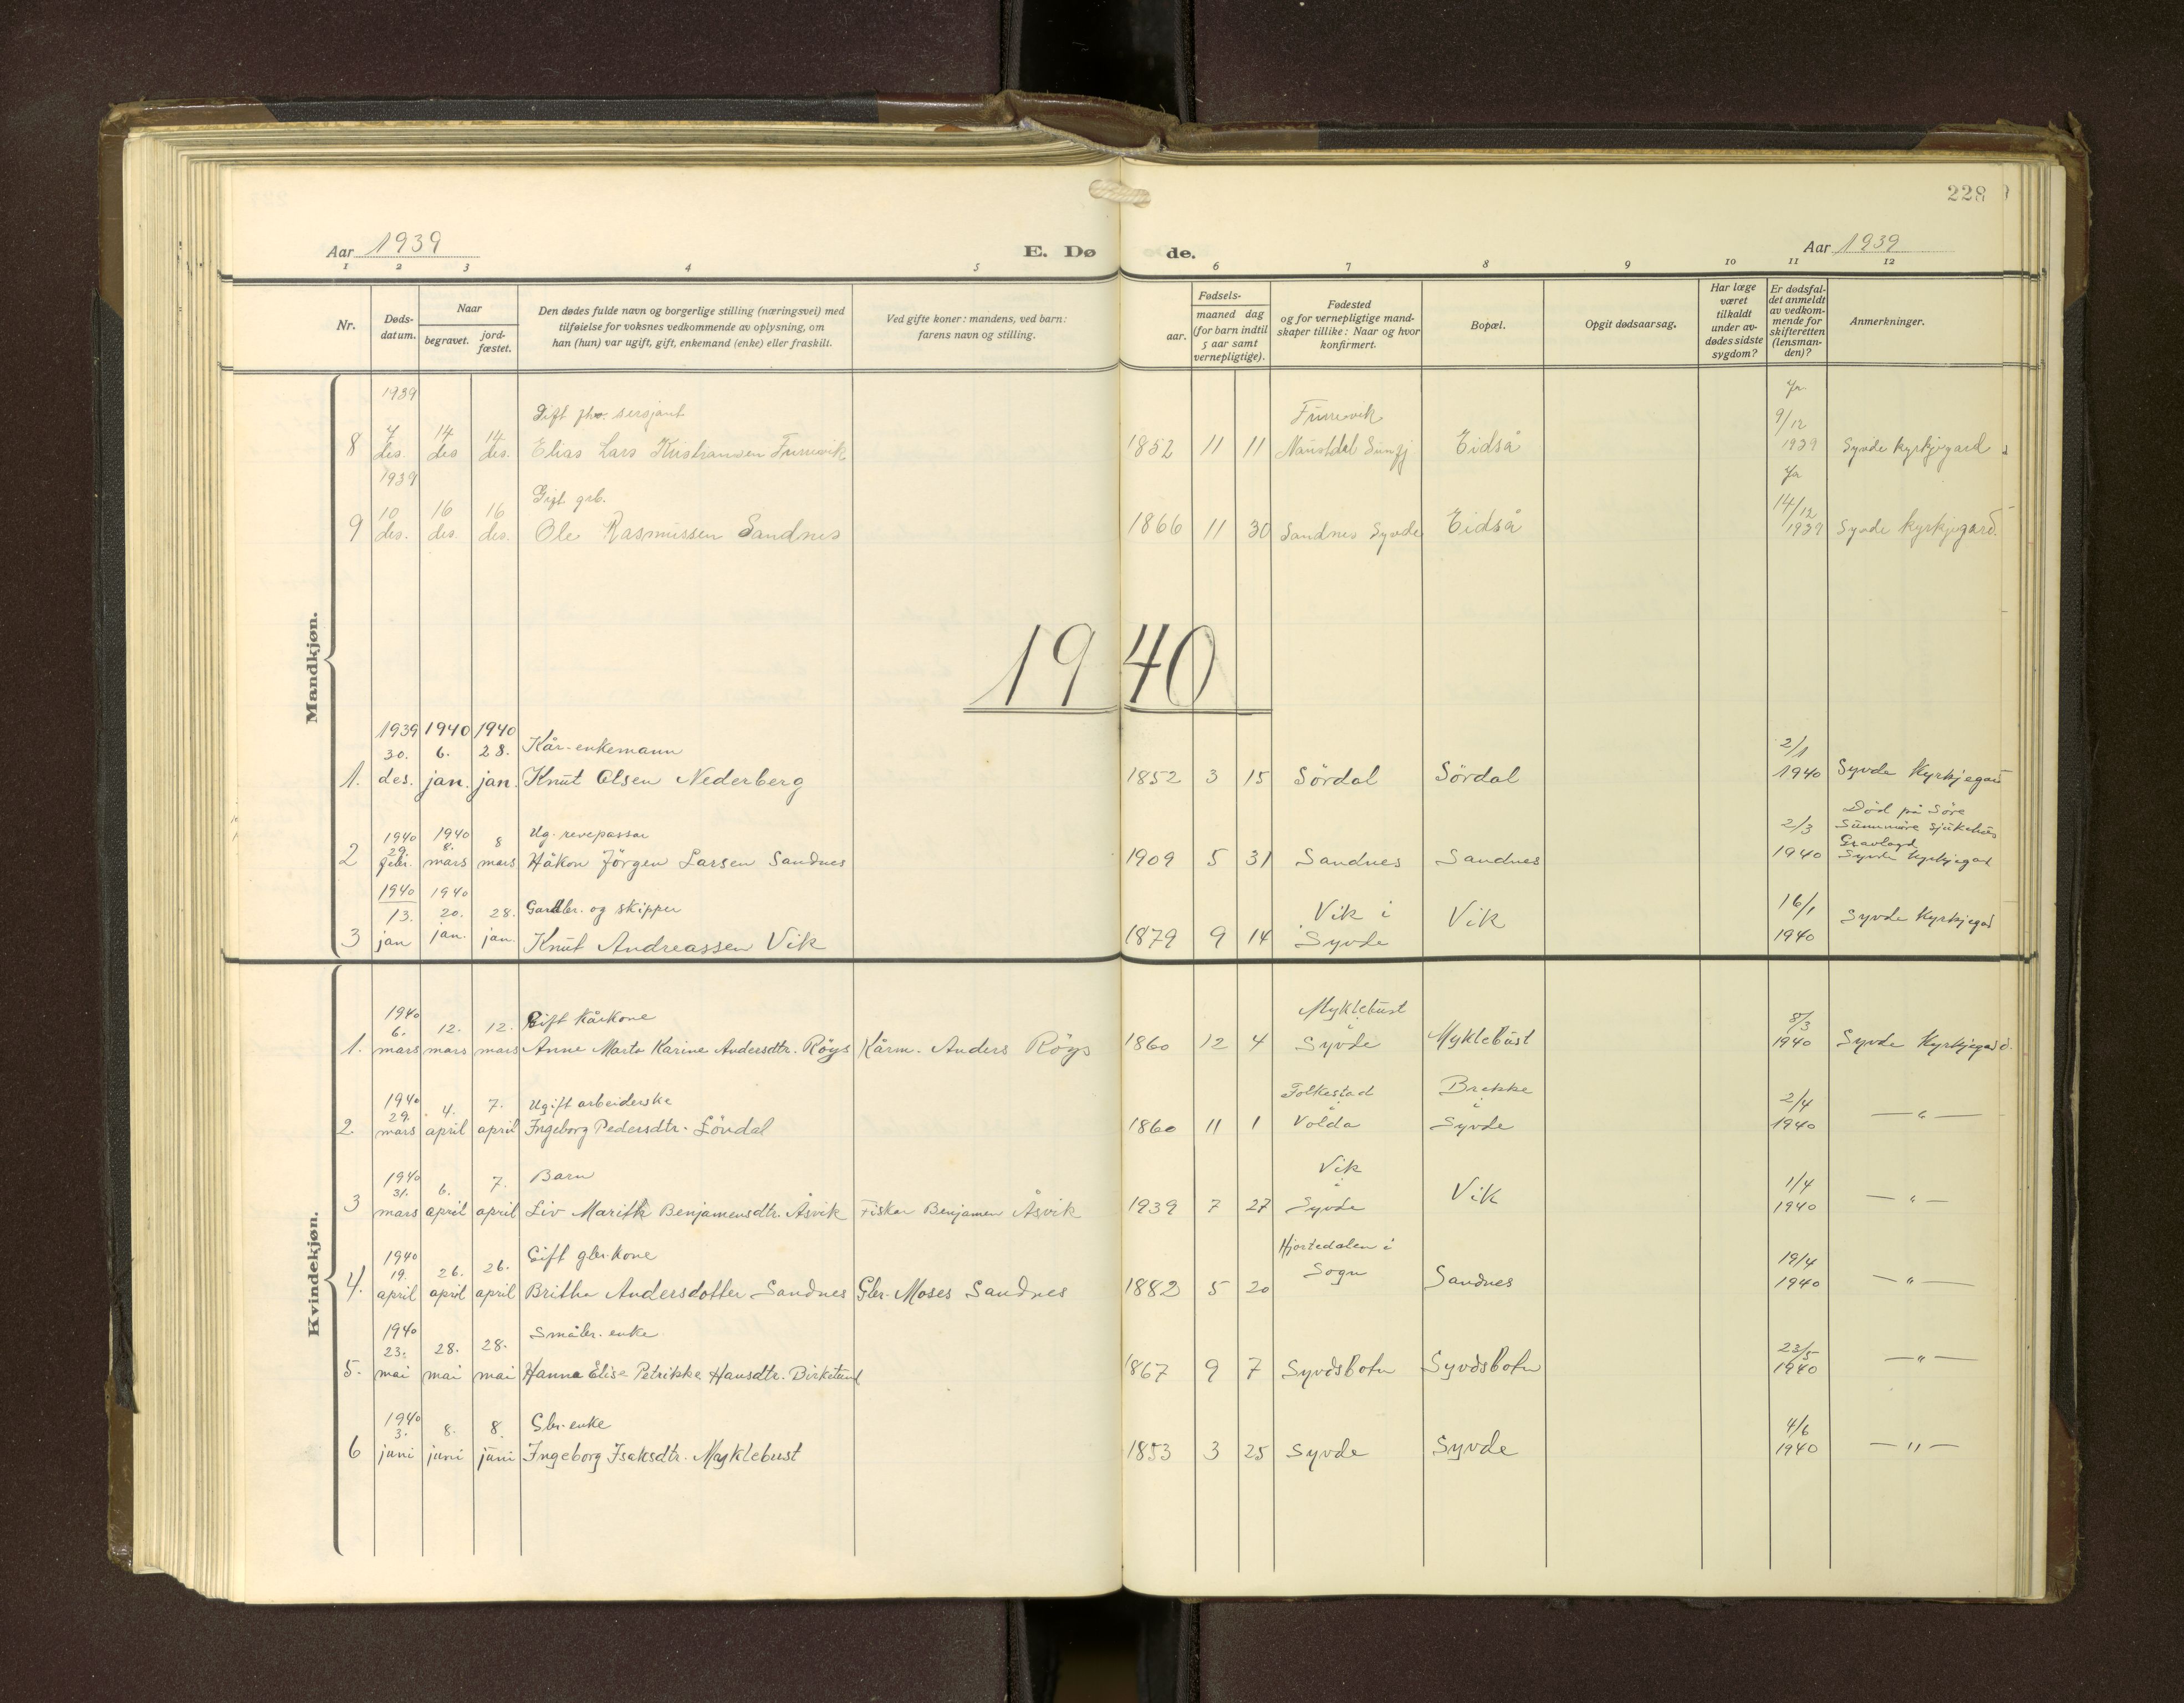 228
Aar 1939
E. Døde.
Aar 1939
1 2 3 4 5 6 7 8 9 10 11 12
Nr.
Døds-
datum.
Naar
begravet.
jord-
fæstet.
Den dødes fulde navn og borgerlige stilling (næringsvei) med
tilføielse for voksnes vedkommende av oplysning, om
han (hun) var ugift, gift, enkemand (enke) eller fraskilt.
Ved gifte koner: mandens, ved barn:
farens navn og stilling.
Fødsels-
aar.
maaned dag
(for barn indtil
5 aar samt
vernepligtige).
Fødested
og for vernepligtige mand-
skaper tillike: Naar og hvor
konfirmert.
Bopæl.
Opgit dødsaarsag.
Har læge
været
tilkaldt
under av-
dødes sidste
sygdom?
Er dødsfal-
det anmeldt
av vedkom-
mende for
skifteretten
(lensman-
den)?
Anmerkninger.
Mandkjøn.
1939 Ja
Gift sersjant Furrevik 9/12
8 7 des. 14 des 14 des. Elias Lars Kristiansen Furrevik 1852 11 11 Naustdal Sunfj Eidså 1939 Syvde kyrkjegard
1939 Ja
Gift grb. 14/12
9 10 des. 16 des. 16 des. Ole Rasmussen Sandnes 1866 11 30 Sandnes Syvde Eidså 1939 Syvde kyrkjegard.
1940
1939 1940 1940
30. 6. 28. Kår-enkemann 2/1
1. des. jan. jan. Knut Olsen Nederberg 1852 3 15 Sördal Sördal 1940 Syvde Kyrkjegard
1940 1940 8 Ug. revepassar Död på Söre
29. 8. 2/3 Sunnmöre sjukehus
Gravlagd
2 febr. mars mars Håkon Jörgen Larsen Sandnes 1909 5 31 Sandnes Sandnes 1940 Syvde Kyrkjegard
1940 1940
13. 20. 28. Gardbr. og skipper Vik i Vik 16/1 Syvde Kyrkjegard
3 jan jan. jan. Knut Andreassen Vik 1879 9 14 Syvde 1940
Kvindekjøn.
1940 Myklebust
6. 12. 12. Gift Kårkone i 8/3
1. mars mars mars Anne Marta Karine Andersdtr. Röys Kårm. Anders Röys 1860 12 4 Syvde Myklebust 1940 Syvde Kyrkjegard.
1940 Folkestad Brekke
29. 4. 7. Ugift arbeiderske i i 2/4
2. mars april april Ingeborg Pedersdtr. Löndal 1860 11 1 Volda Syvde 1940 — " —
1940 Vik
31. 6. 7. Barn i 1/4
3 mars april april Liv Marith Benjamensdtr. Åsvik Fisker Benjamen Åsvik 1939 7 27 Syvde Vik 1940 — " —
1940 Hjortedalen i
19. 26. 26. Gift gbr. kone Sogn 19/4
4. april april april Britha Andersdotter Sandnes Gbr. Moses Sandnes 1882 5 20 Sandnes 1940 — " —
1940
23. 28. 28. Småbr. enke 23/5
5. mai mai mai Hanna Elise Petrikke Hansdtr. Birketund 1867 9 7 Syvdsbotn Syvdsbotn 1940 — " —
1940
3. 8. 8. Gbr. enke 4/6
6 juni juni juni Ingeborg Isaksdtr. Myklebust 1853 3 25 Syvde Syvde 1940 — " —